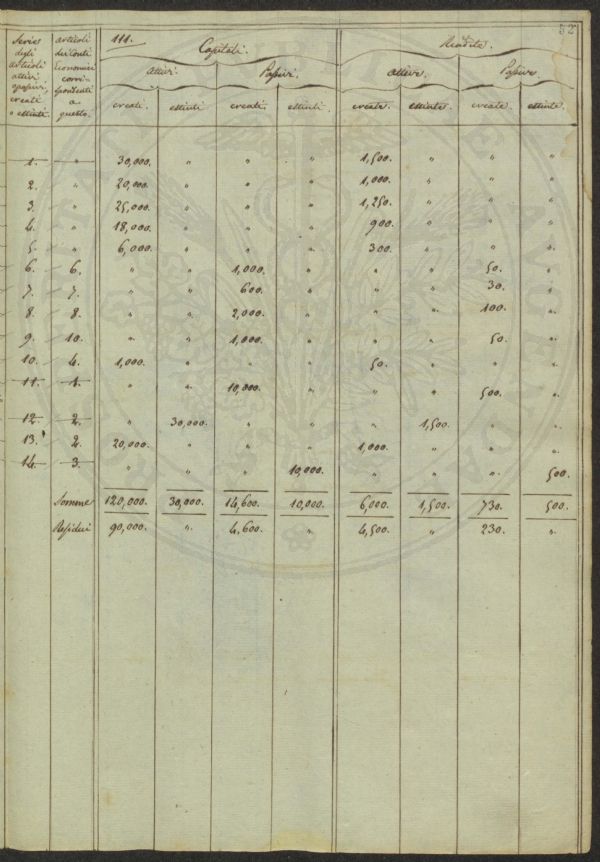 52
Serie degli articoli attivi, o passivi, creati o estinti.
articoli dei Conti Economici corrispondenti a questo.
111.
Capitali. Rendite.
attivi. Passivi. attive. Passive.
creati. estinti creati. estinti. create. estinte. create. estinte.
1. " 30,000. " " " 1,500. " " "
2. " 20,000. " " " 1,000. " " "
3. " 25,000. " " " 1,250. " " "
4. " 18,000. " " " 900. " " "
5. " 6,000. " " " 300. " " "
6. 6. " " 1,000. " " " 50. "
7. 7. " " 600. " " " 30. "
8. 8. " " 2,000. " " " 100. "
9. 10. " " 1,000. " " " 50. "
10. 4. 1,000. " " " 50. " " "
11. 1. " " 10,000. " " " 500. "
12. 2. " 30,000. " " " 1,500. " "
13. 2. 20,000. " " " 1,000. " " "
14. 3. " " " 10,000. " " " 500.
Somme 120,000. 30,000. 14,600. 10,000. 6,000. 1,500. 730. 500.
Residui 90,000. " 4,600. " 4,500. " 230. "